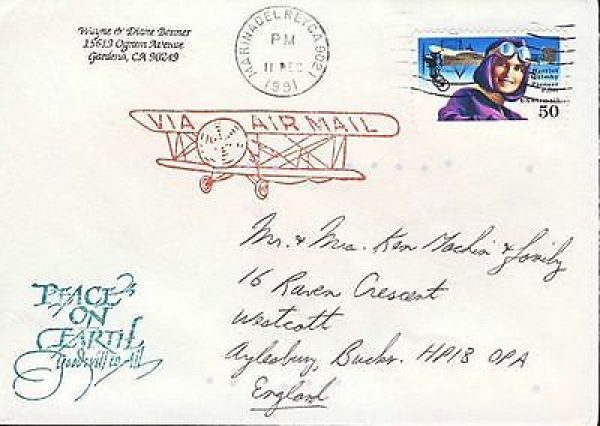 Wayne & Diane Besner
15613 Ogram Avenue
Gardena, CA 90249
MARINA DEL REY, CA 9029
PM
11 DEC
1991
Harriet
Quimby
Pioneer
Pilot
USAirmail
50
VIA AIR MAIL
Mr. & Mrs. Ken Tachin & family
16 Raven Crescent
Westcott
Aylesbury, Bucks. HP18 OPA
England
PEACE
ON
EARTH
Goodwill to All